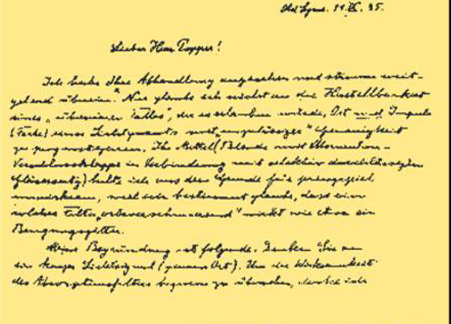 Old Lyme. 11.IX.35.
Lieber Herr Popper!
Ich habe Ihre Abhandlung angesehen und stimme weit-
gehend überein. Nur glaube ich nicht an die Herstellbarkeit
eines „überreinen Falles", der es erlauben würde, Ort und Impuls
(Farbe) eines Lichtquants mit „unzulässiger" Genauigkeit
zu prognostizieren. Ihr Mittel (Blende und Momentan-
Verschlussklappe in Verbindung mit selektiv durchlässigem
) halte ich aus dem Grunde für prinzipiell
unwirksam, weil ich bestimmt glaube, dass ein
solches Filter „ortverschmierend" wirkt wie etwa ein
Beugungsgitter.
Meine Begründung ist folgende. Denken Sie an
ein kurzes Lichtsignal (genauer Ort). Um die Wirksamkeit
des Absorptionsfilters bequemer zu übersehen, denke ich